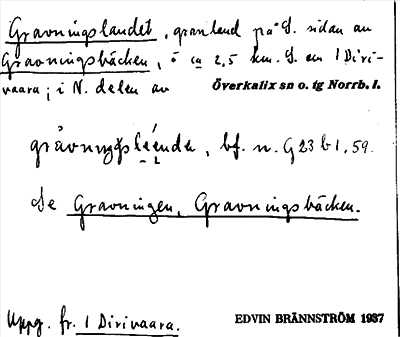 Gravningslandet, granland på S. sidan av
Gravningsbäcken, ö ca 2,5 km. S. om 1 Diri-
vaara; i N. delen av Överkalix sn o. tg Norrb. l.
bf. n. G 23 b 1, 59.
Se Gravningen, Gravningsbäcken.
Uppg. fr. 1 Dirivaara. EDVIN BRÄNNSTRÖM 1937